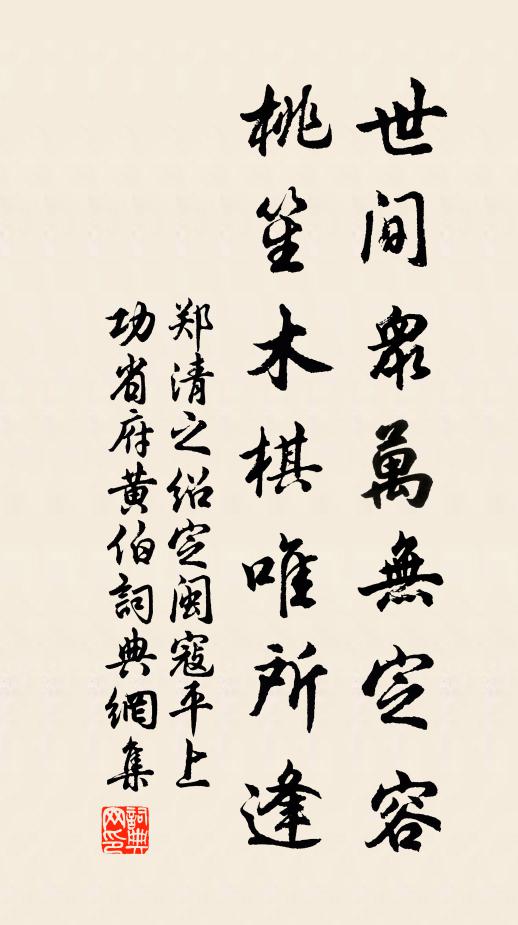 世间眾萬無定容
桃笙木棋唯所逢
郑清之绍定闽寇平上
功省府黄伯詞典網集
詞典网印